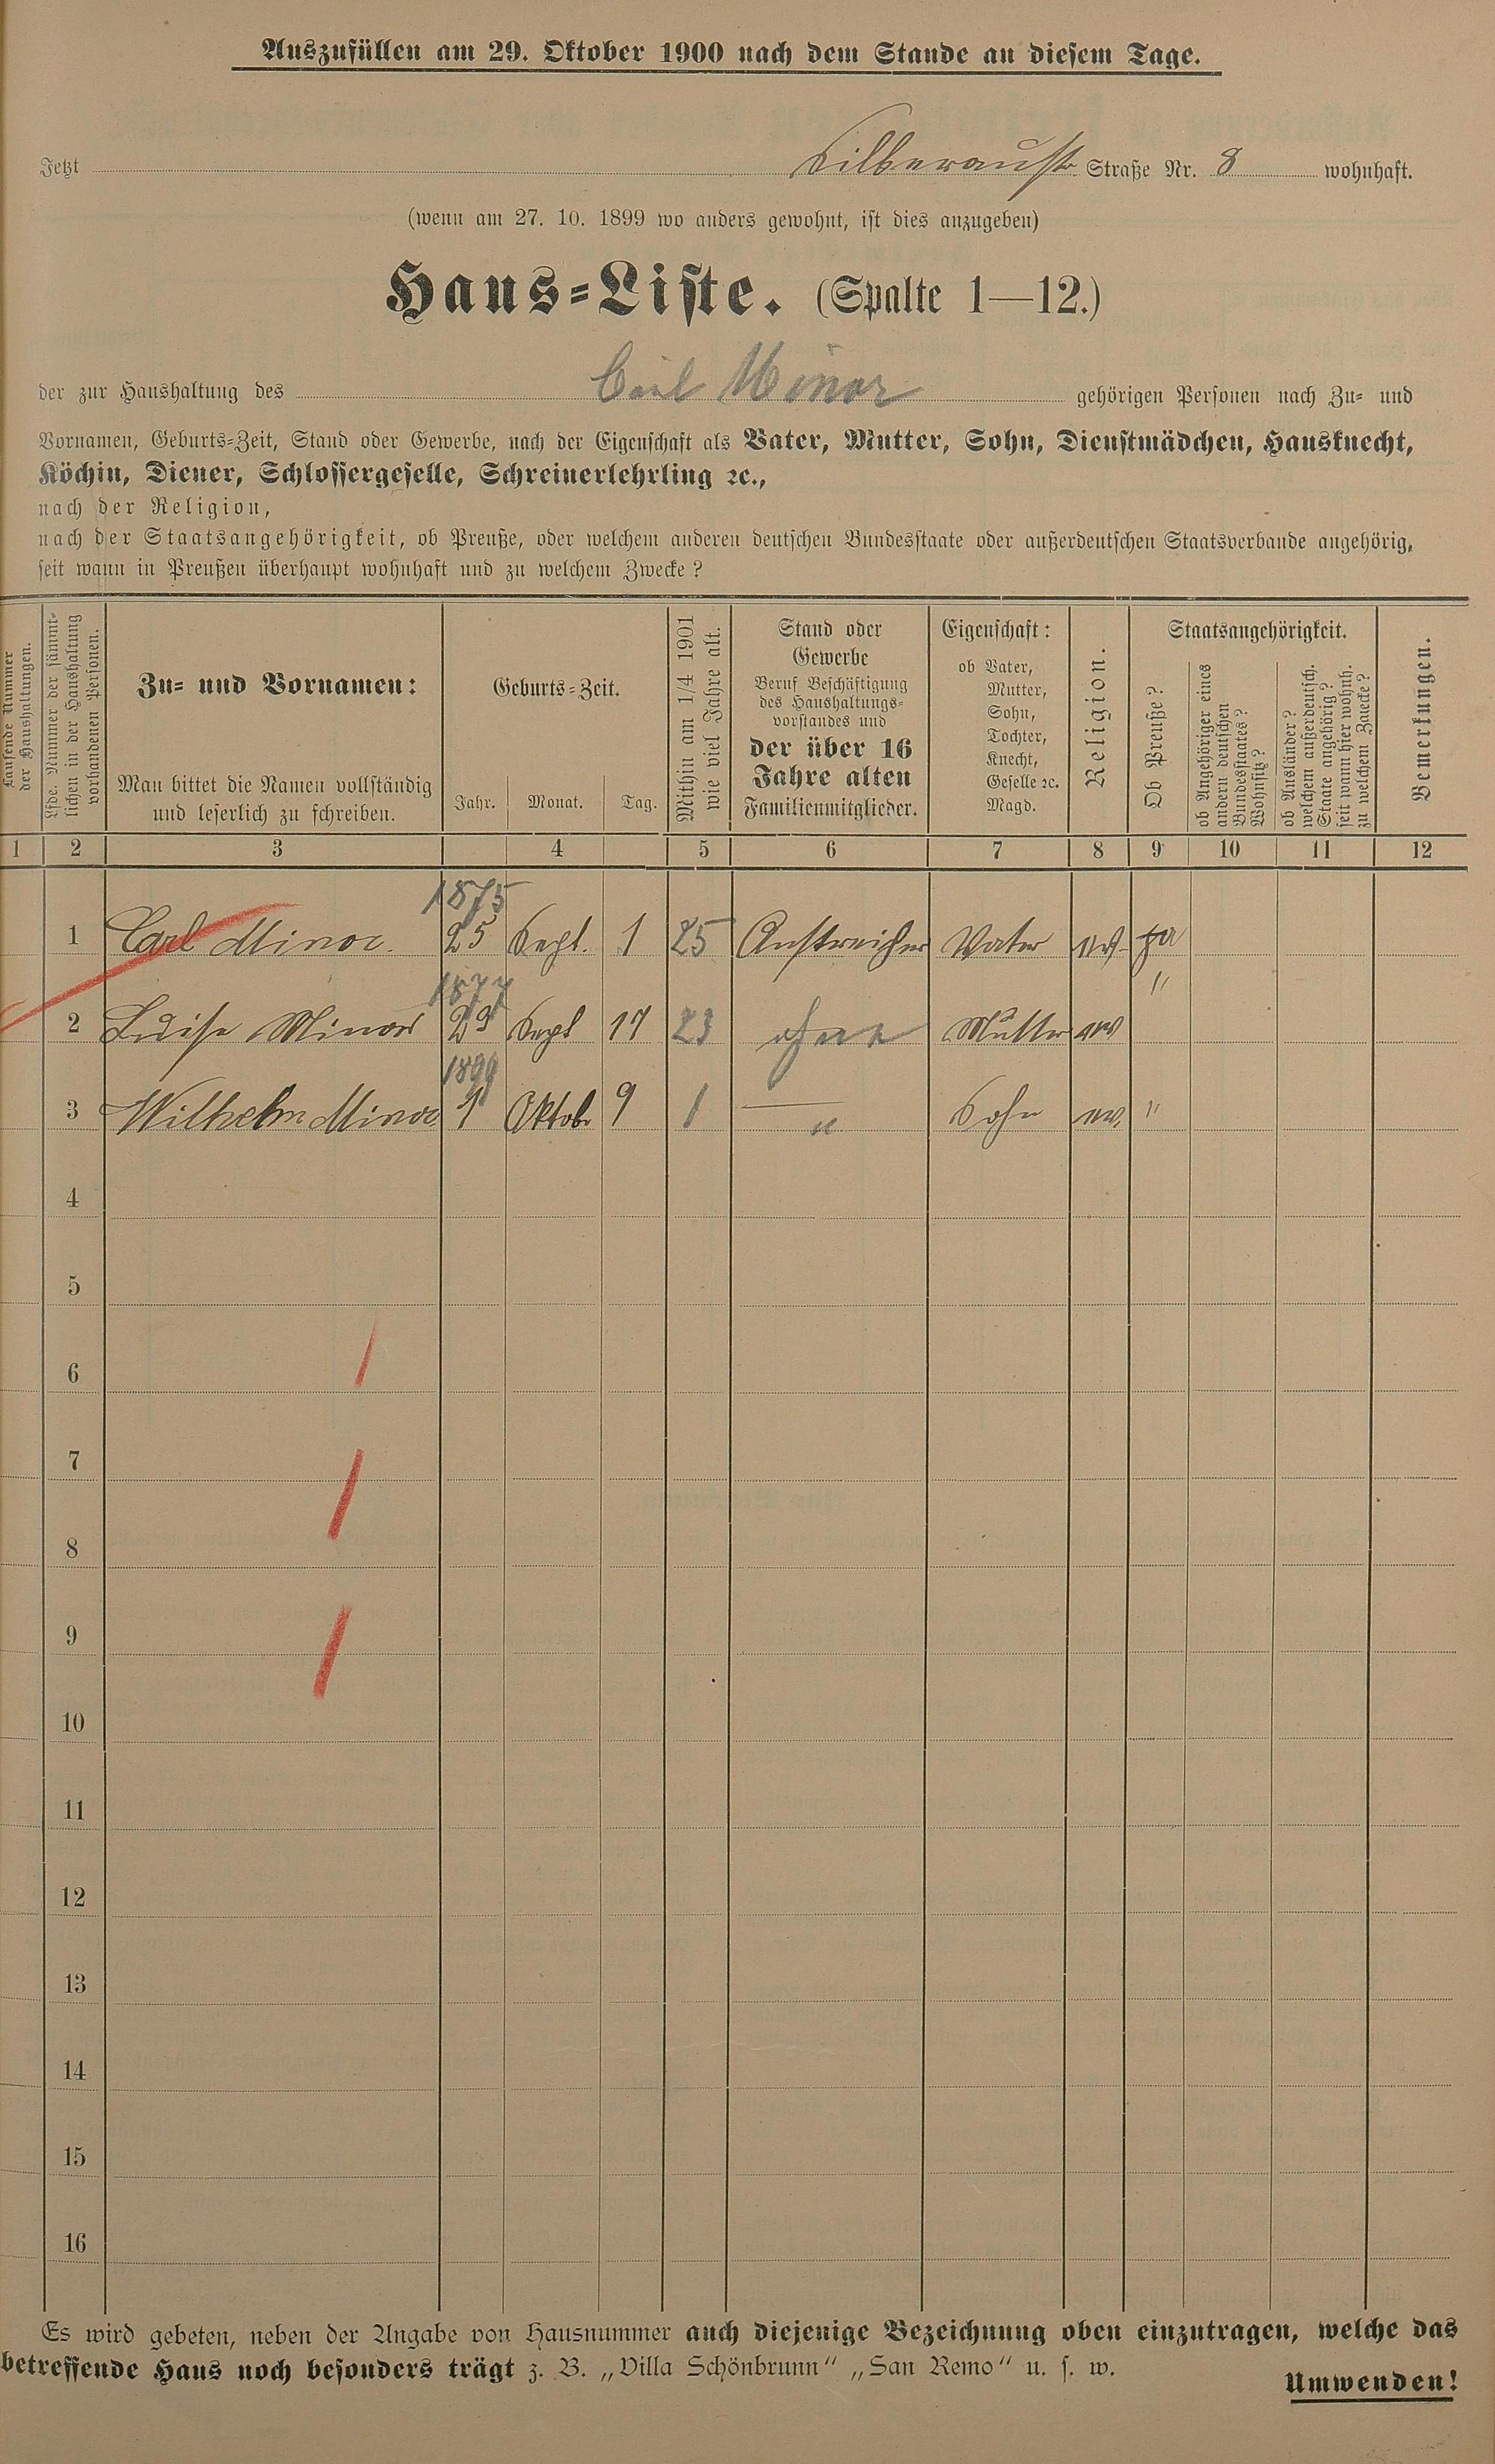 Auszufüllen am 29. Oktober 1900 nach dem Stande an diesem Tage.
Jetzt Silberaustr Straße Nr. 8 wohnhaft.
(wenn am 27. 10. 1899 wo anders gewohnt, ist dies anzugeben)
Haus-Liste. (Spalte 1—12.)
der zur Haushaltung des Carl Minor gehörigen Personen nach Zu- und
Vornamen, Geburts-Zeit, Stand oder Gewerbe, nach der Eigenschaft als Vater, Mutter, Sohn, Dienstmädchen, Hausknecht,
Köchin, Diener, Schlossergeselle, Schreinerlehrling ꝛc.,
nach der Religion,
nach der Staatsangehörigkeit, ob Preuße, oder welchem anderen deutschen Bundesstaate oder außerdeutschen Staatsverbande angehörig,
seit wann in Preußen überhaupt wohnhaft und zu welchem Zwecke?
Laufende Nummer
der Haushaltungen.
Lfde. Nummer der sämmt-
lichen in der Haushaltung
vorhandenen Personen.
Zu- und Vornamen:
Man bittet die Namen vollständig
und leserlich zu schreiben.
Geburts-Zeit.
Jahr. Monat. Tag.
Mithin am 1/4 1901
wie viel Jahre alt.
Stand oder
Gewerbe
Beruf Beschäftigung
des Haushaltungs-
vorstandes und
der über 16
Jahre alten
Familienmitglieder.
Eigenschaft:
ob Vater,
Mutter,
Sohn,
Tochter,
Knecht,
Geselle ꝛc.
Magd.
Religion.
Staatsangehörigkeit.
Ob Preuße?
ob Angehöriger eines
andern deutschen
Bundesstaates?
Wohnsitz?
ob Ausländer?
welchem außerdeutsch.
Staate angehörig?
seit wann hier wohnh.
zu welchem Zwecke?
Bemerkungen.
1 2 3 4 5 6 7 8 9 10 11 12
1875
1 Carl Minor. 25 Sept. 1 25 Anstreicher Vater ev. ja
1877
2 Luise Minor 23 Sept 17 23 ohne Mutter ev "
1899
3 Wilhelm Minor 1 Oktob 9 1 — " Sohn ev. "
4
5
6
7
8
9
10
11
12
13
14
15
16
Es wird gebeten, neben der Angabe von Hausnummer auch diejenige Bezeichnung oben einzutragen, welche das
betreffende Haus noch besonders trägt z. B. „Villa Schönbrunn“ „San Remo“ u. s. w.
Umwenden!